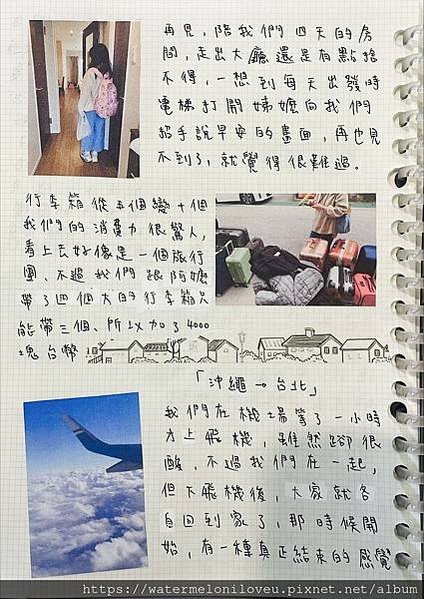 再見，陪我們四天的房
間，走出大廳還是有點捨
不得，一想到每天出發時
電梯打開嬸嬤向我們
招手說早安的畫面，再也見
不到了，就覺得很難過。
行李箱從五個變十個
我們的消費力很驚人，
看上去好像是一個旅行
團、不過我們跟阿嬤
帶了四個大的行李箱只
能帶三個、所以加了4000
塊台幣
「沖繩→台北」
我們在機場等了一小時
才上飛機，雖然腳很
酸、不過我們在一起，
但下飛機後，大家就各
自回到家了，那時候開
始，有一種真正結束的感覺
https://watermeloniloveu.pixnet.net/album